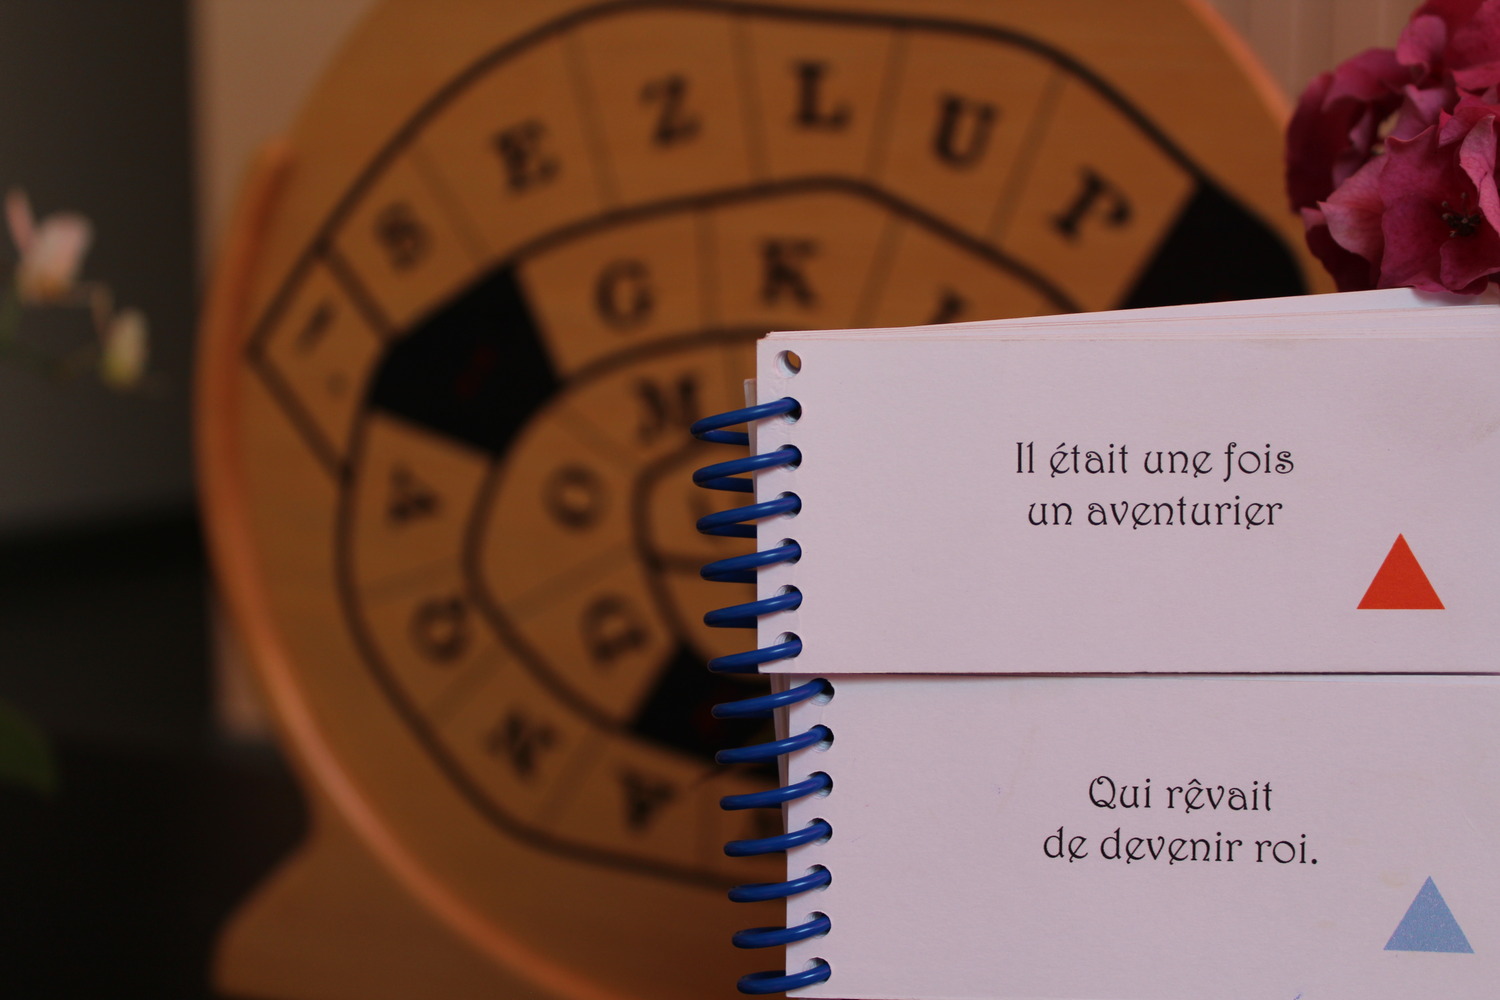 S E Z L U P
G K
M
O
Il était une fois
un aventurier
Qui rêvait
de devenir roi.